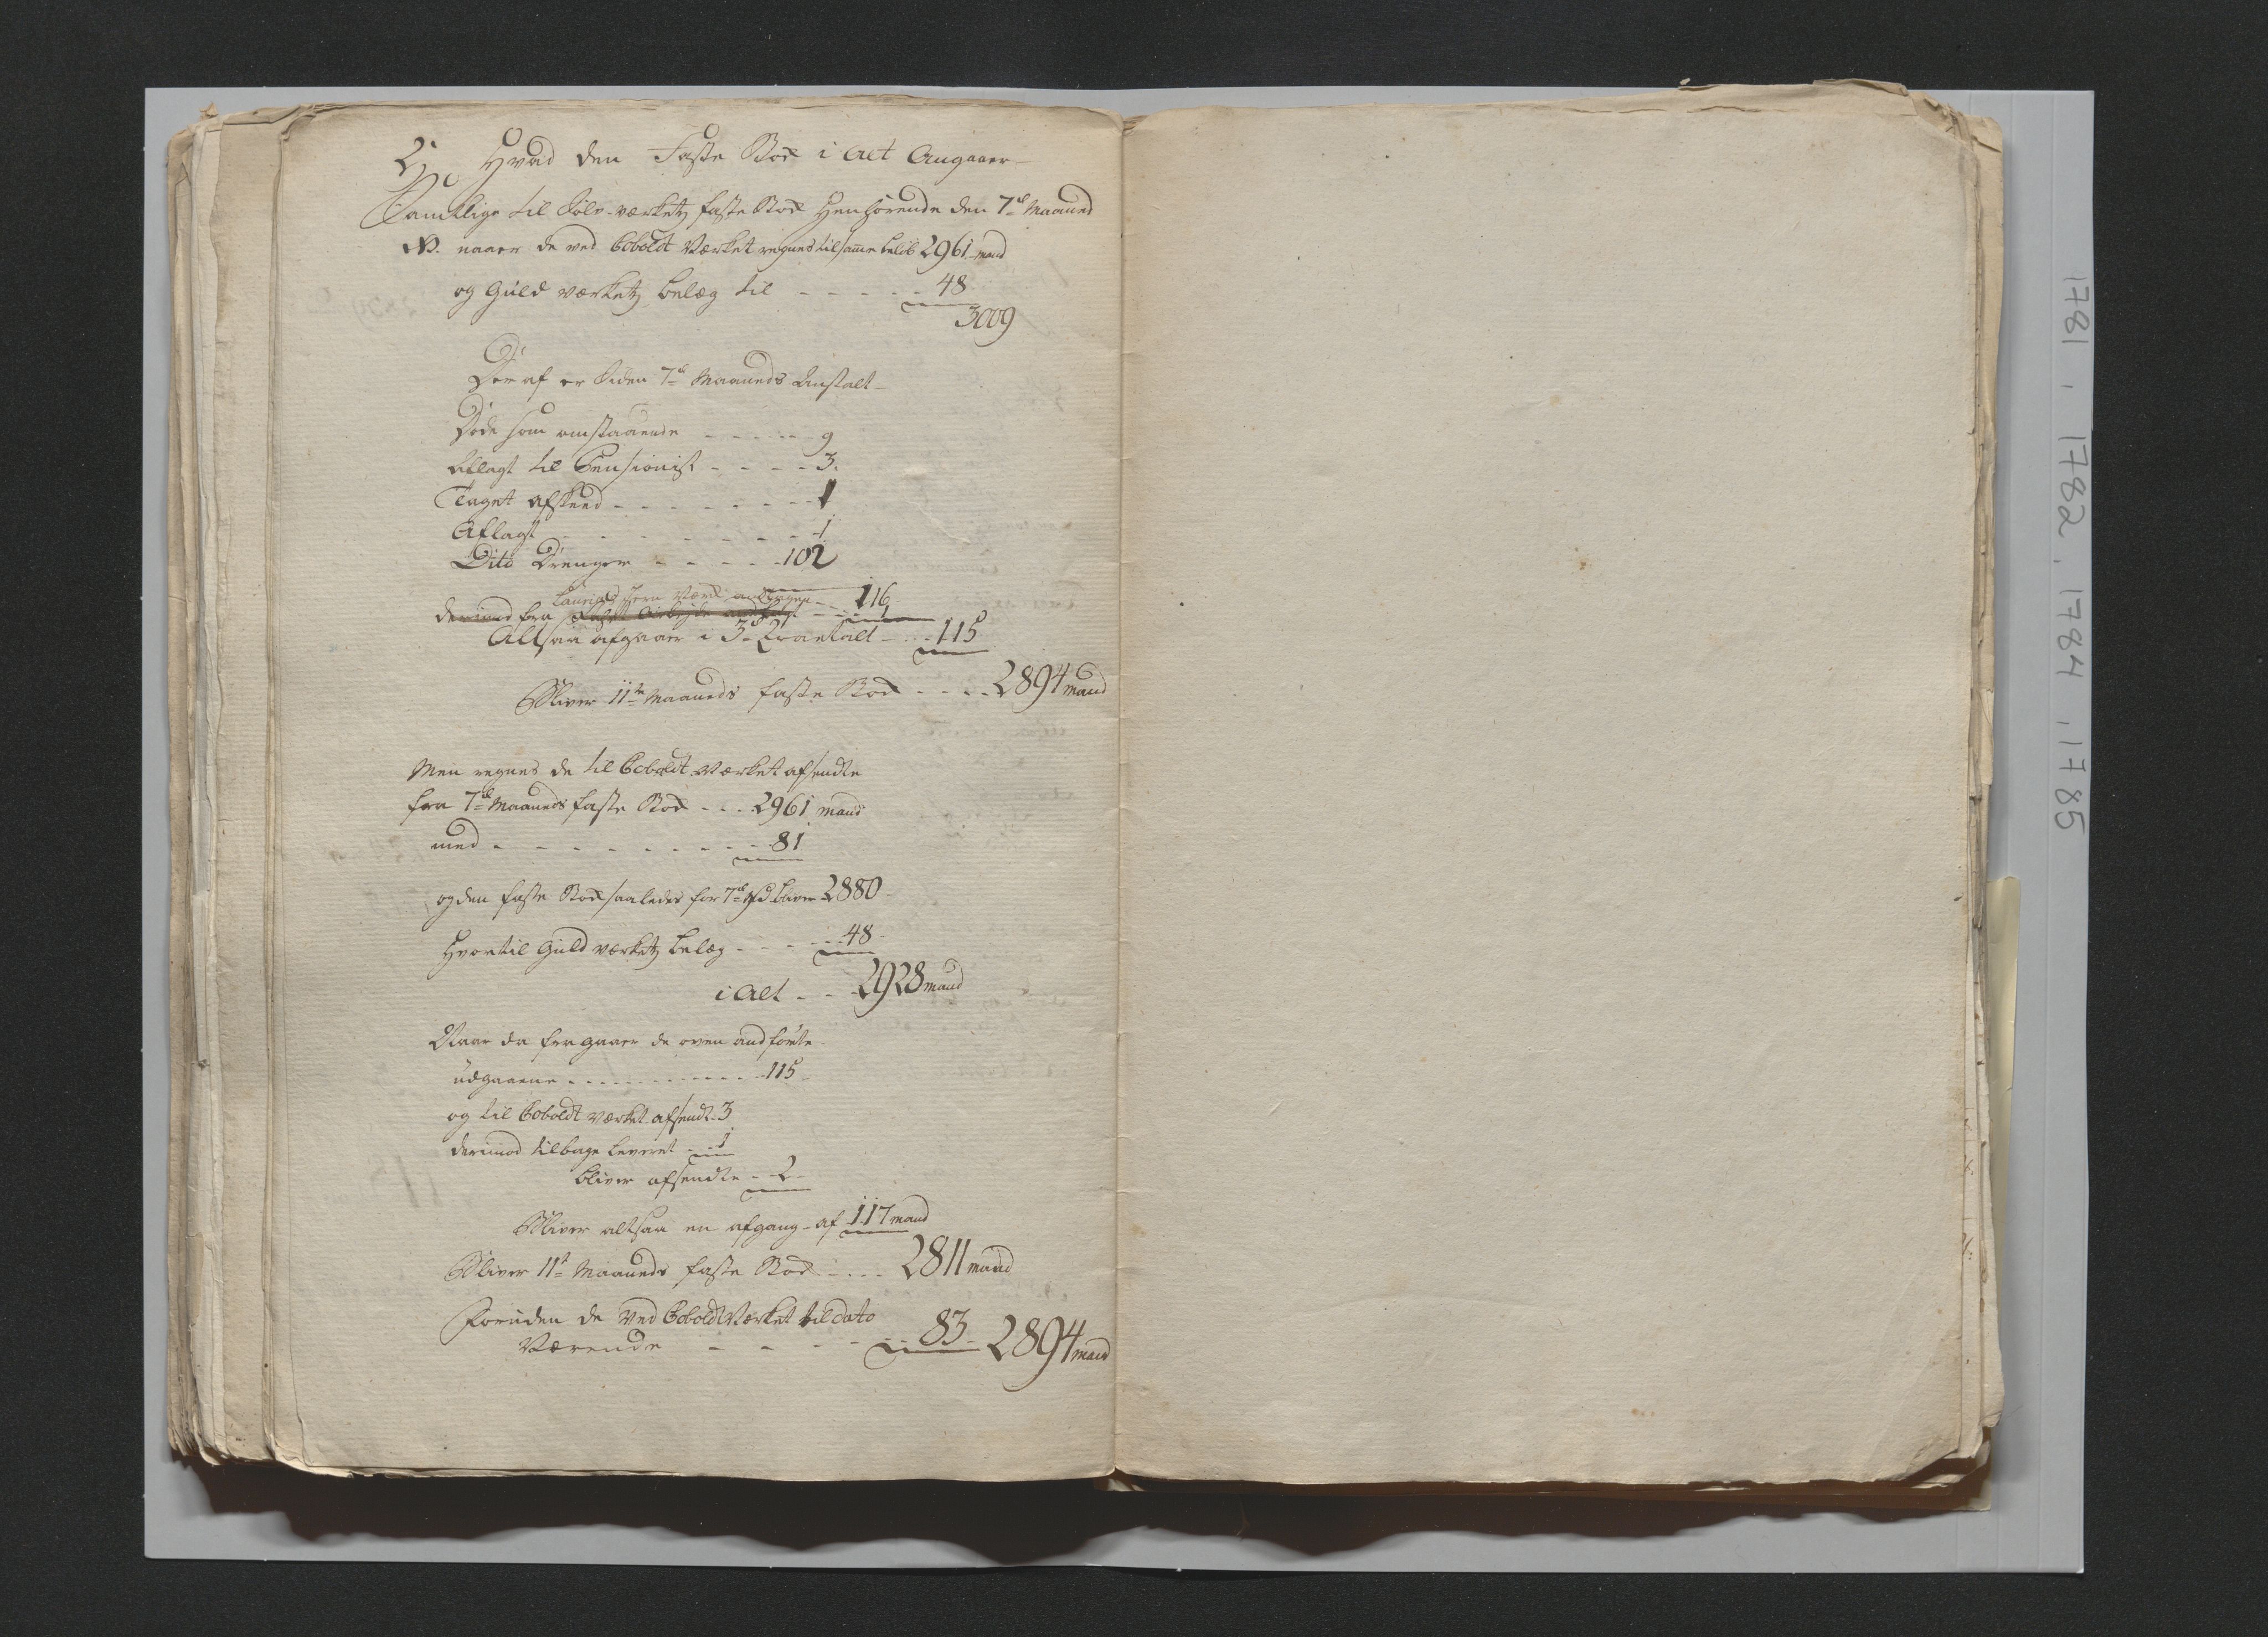 2, Hvad den Faste Stok i alt Angaaer
Samtlige til Sølv-værkets faste Stok Henhørende den 7de Maaned
naar de ved Coboldt Værket regnes til samme beløb 2961 mand
og Guld værkets belæg til - - - - 48
3009
Der af er siden 7de Maaneds Anstalt
Døde som omstaaende - - - - 9
Aflagt til Pensionist - - - - 3
Taget afskeed - - - - - - 1
Aflagt - - - - - - - 1
Dito Drenger - - - - 102
Jern Værk antagen - - 116
derimod fra - - - 1
Altsaa afgaaer i 3de Qvartall - - - 115
Bliver 11te Maaneds faste Stok - - - - 2894 mand
Men regnes de til Coboldt Værket afsendte
fra 7de Maaneds faste Stok - - - 2961 mand
med - - - - - - - - - 81
og den faste Stok saaledes for 7de bliver 2880
Hvortil Guld værkets belæg - - - - - 48
i Alt - - - 2928 mand
Naar da fragaaer de oven andførte
udgaaene - - - - - - - - - - - 115
og til Coboldt værket afsendt 3
derimod tilbage leveret - - 1
bliver afsendte - - 2
Bliver altsaa en afgang af 117 mand
Bliver 11te Maaneds faste Stok - - - - 2811 mand
Foruden de ved Coboldt Værket til dato
Værende - - - - - - 83 - 2894 mand
1781, 1782, 1784, 1785